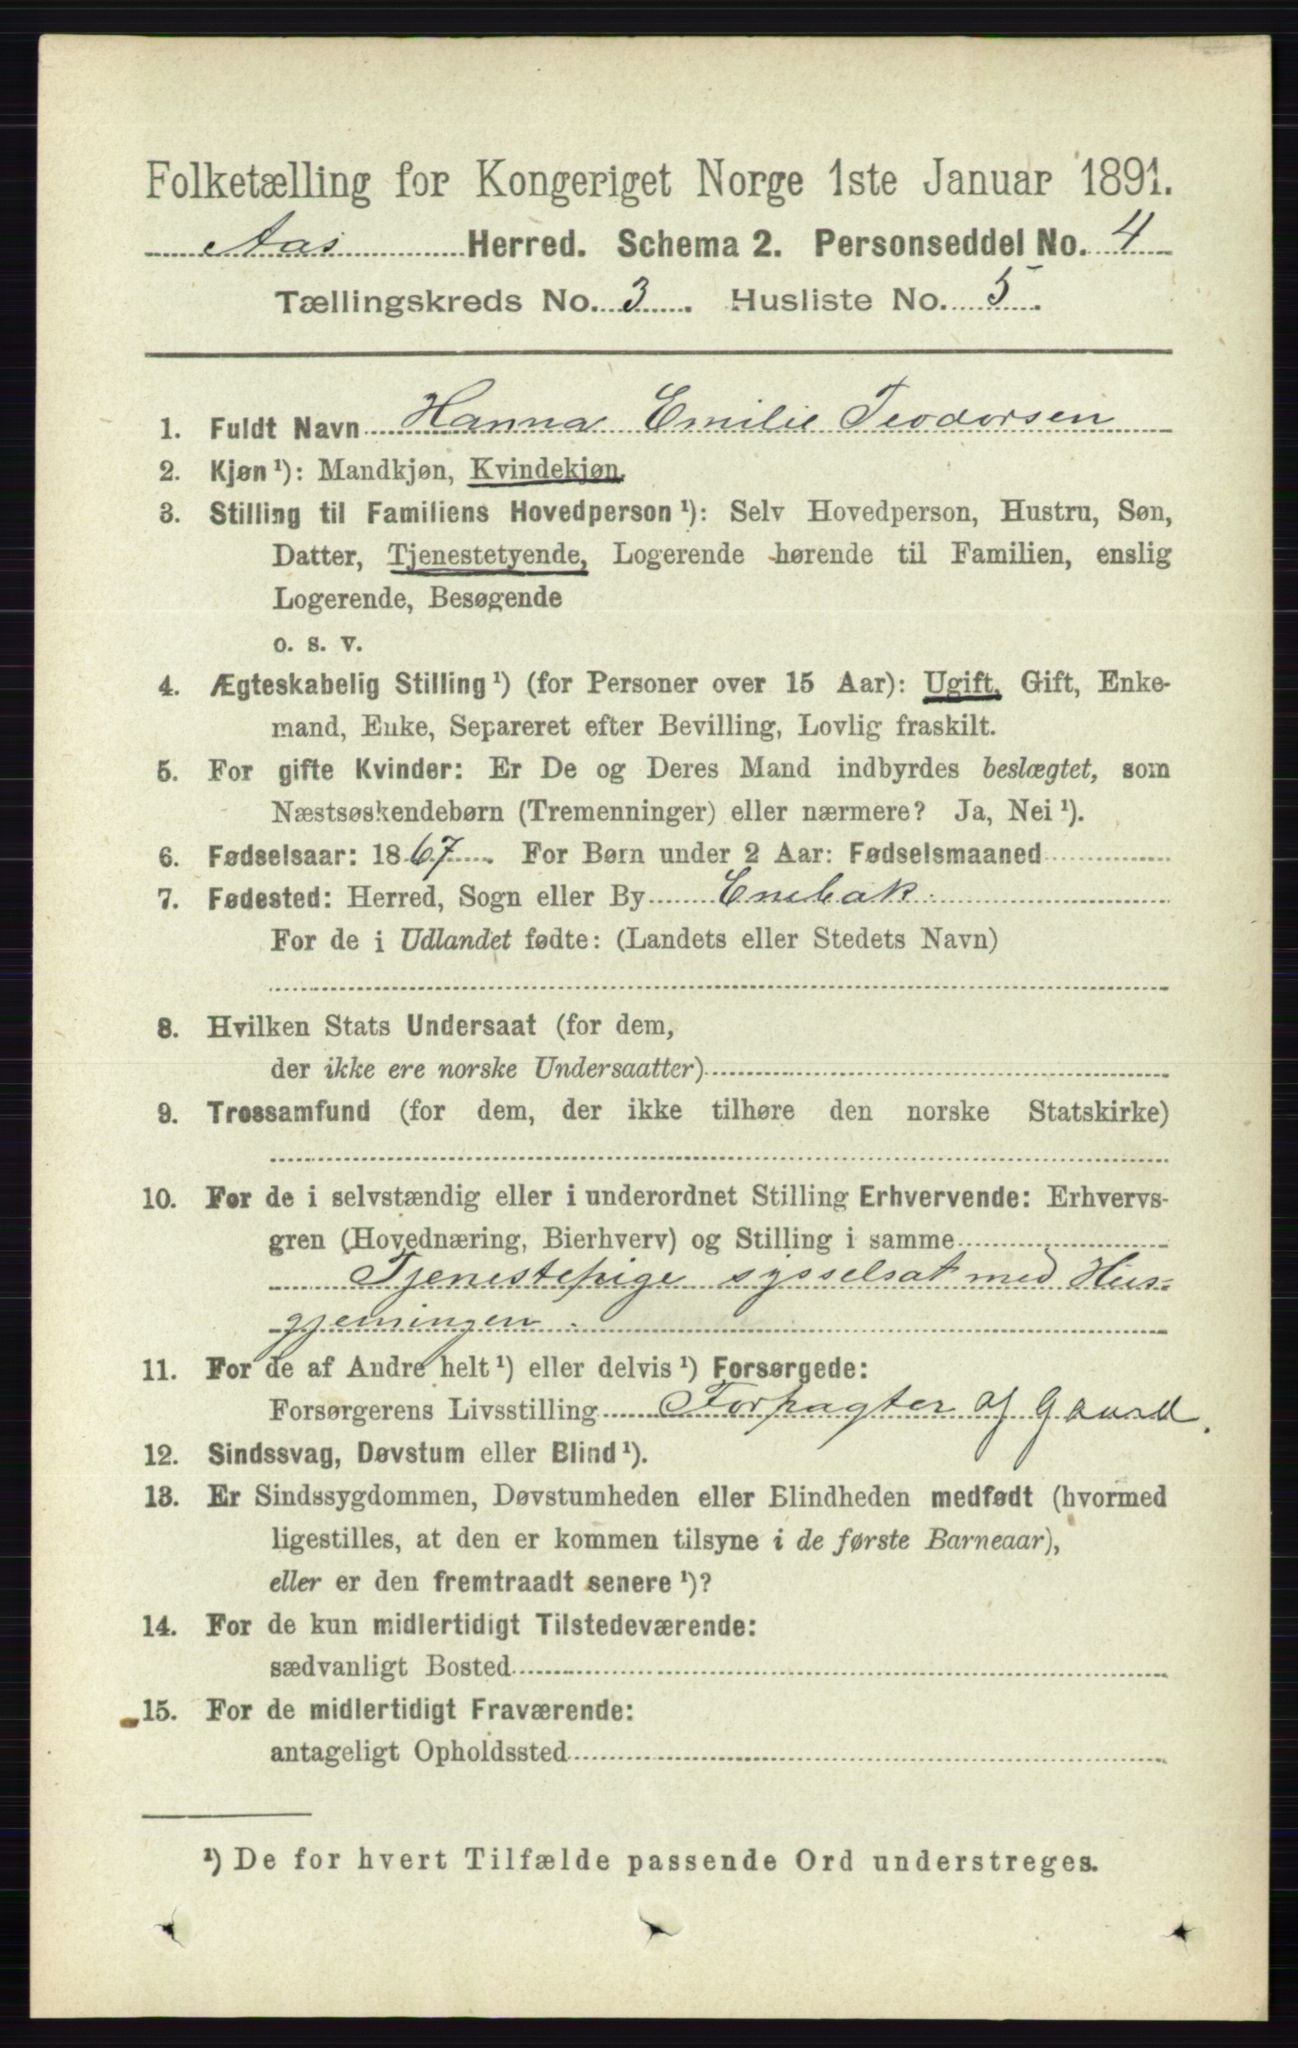 Folketælling for Kongeriget Norge 1ste Januar 1891.
Aas Herred. Schema 2. Personseddel No. 4
Tællingskreds No. 3. Husliste No. 5.
1. Fuldt Navn Hanna Emilie Teodorsen
2. Kjøn ¹): Mandkjøn, Kvindekjøn.
3. Stilling til Familiens Hovedperson ¹): Selv Hovedperson, Hustru, Søn,
Datter, Tjenestetyende, Logerende hørende til Familien, enslig
Logerende, Besøgende
o. s. v.
4. Ægteskabelig Stilling ¹) (for Personer over 15 Aar): Ugift, Gift, Enke-
mand, Enke, Separeret efter Bevilling, Lovlig fraskilt.
5. For gifte Kvinder: Er De og Deres Mand indbyrdes beslægtet, som
Næstsøskendebørn (Tremenninger) eller nærmere? Ja, Nei ¹).
6. Fødselsaar: 1867. For Børn under 2 Aar: Fødselsmaaned
7. Fødested: Herred, Sogn eller By Enebak.
For de i Udlandet fødte: (Landets eller Stedets Navn)
8. Hvilken Stats Undersaat (for dem,
der ikke ere norske Undersaatter)
9. Trossamfund (for dem, der ikke tilhøre den norske Statskirke)
10. For de i selvstændig eller i underordnet Stilling Erhvervende: Erhvervs-
gren (Hovednæring, Bierhverv) og Stilling i samme
Tjenestepige sysselsat med Hus-
gjerningen.
11. For de af Andre helt ¹) eller delvis ¹) Forsørgede:
Forsørgerens Livsstilling Forpagter af Gaard.
12. Sindssvag, Døvstum eller Blind ¹).
13. Er Sindssygdommen, Døvstumheden eller Blindheden medfødt (hvormed
ligestilles, at den er kommen tilsyne i de første Barneaar),
eller er den fremtraadt senere ¹)?
14. For de kun midlertidigt Tilstedeværende:
sædvanligt Bosted
15. For de midlertidigt Fraværende:
antageligt Opholdssted
¹) De for hvert Tilfælde passende Ord understreges.